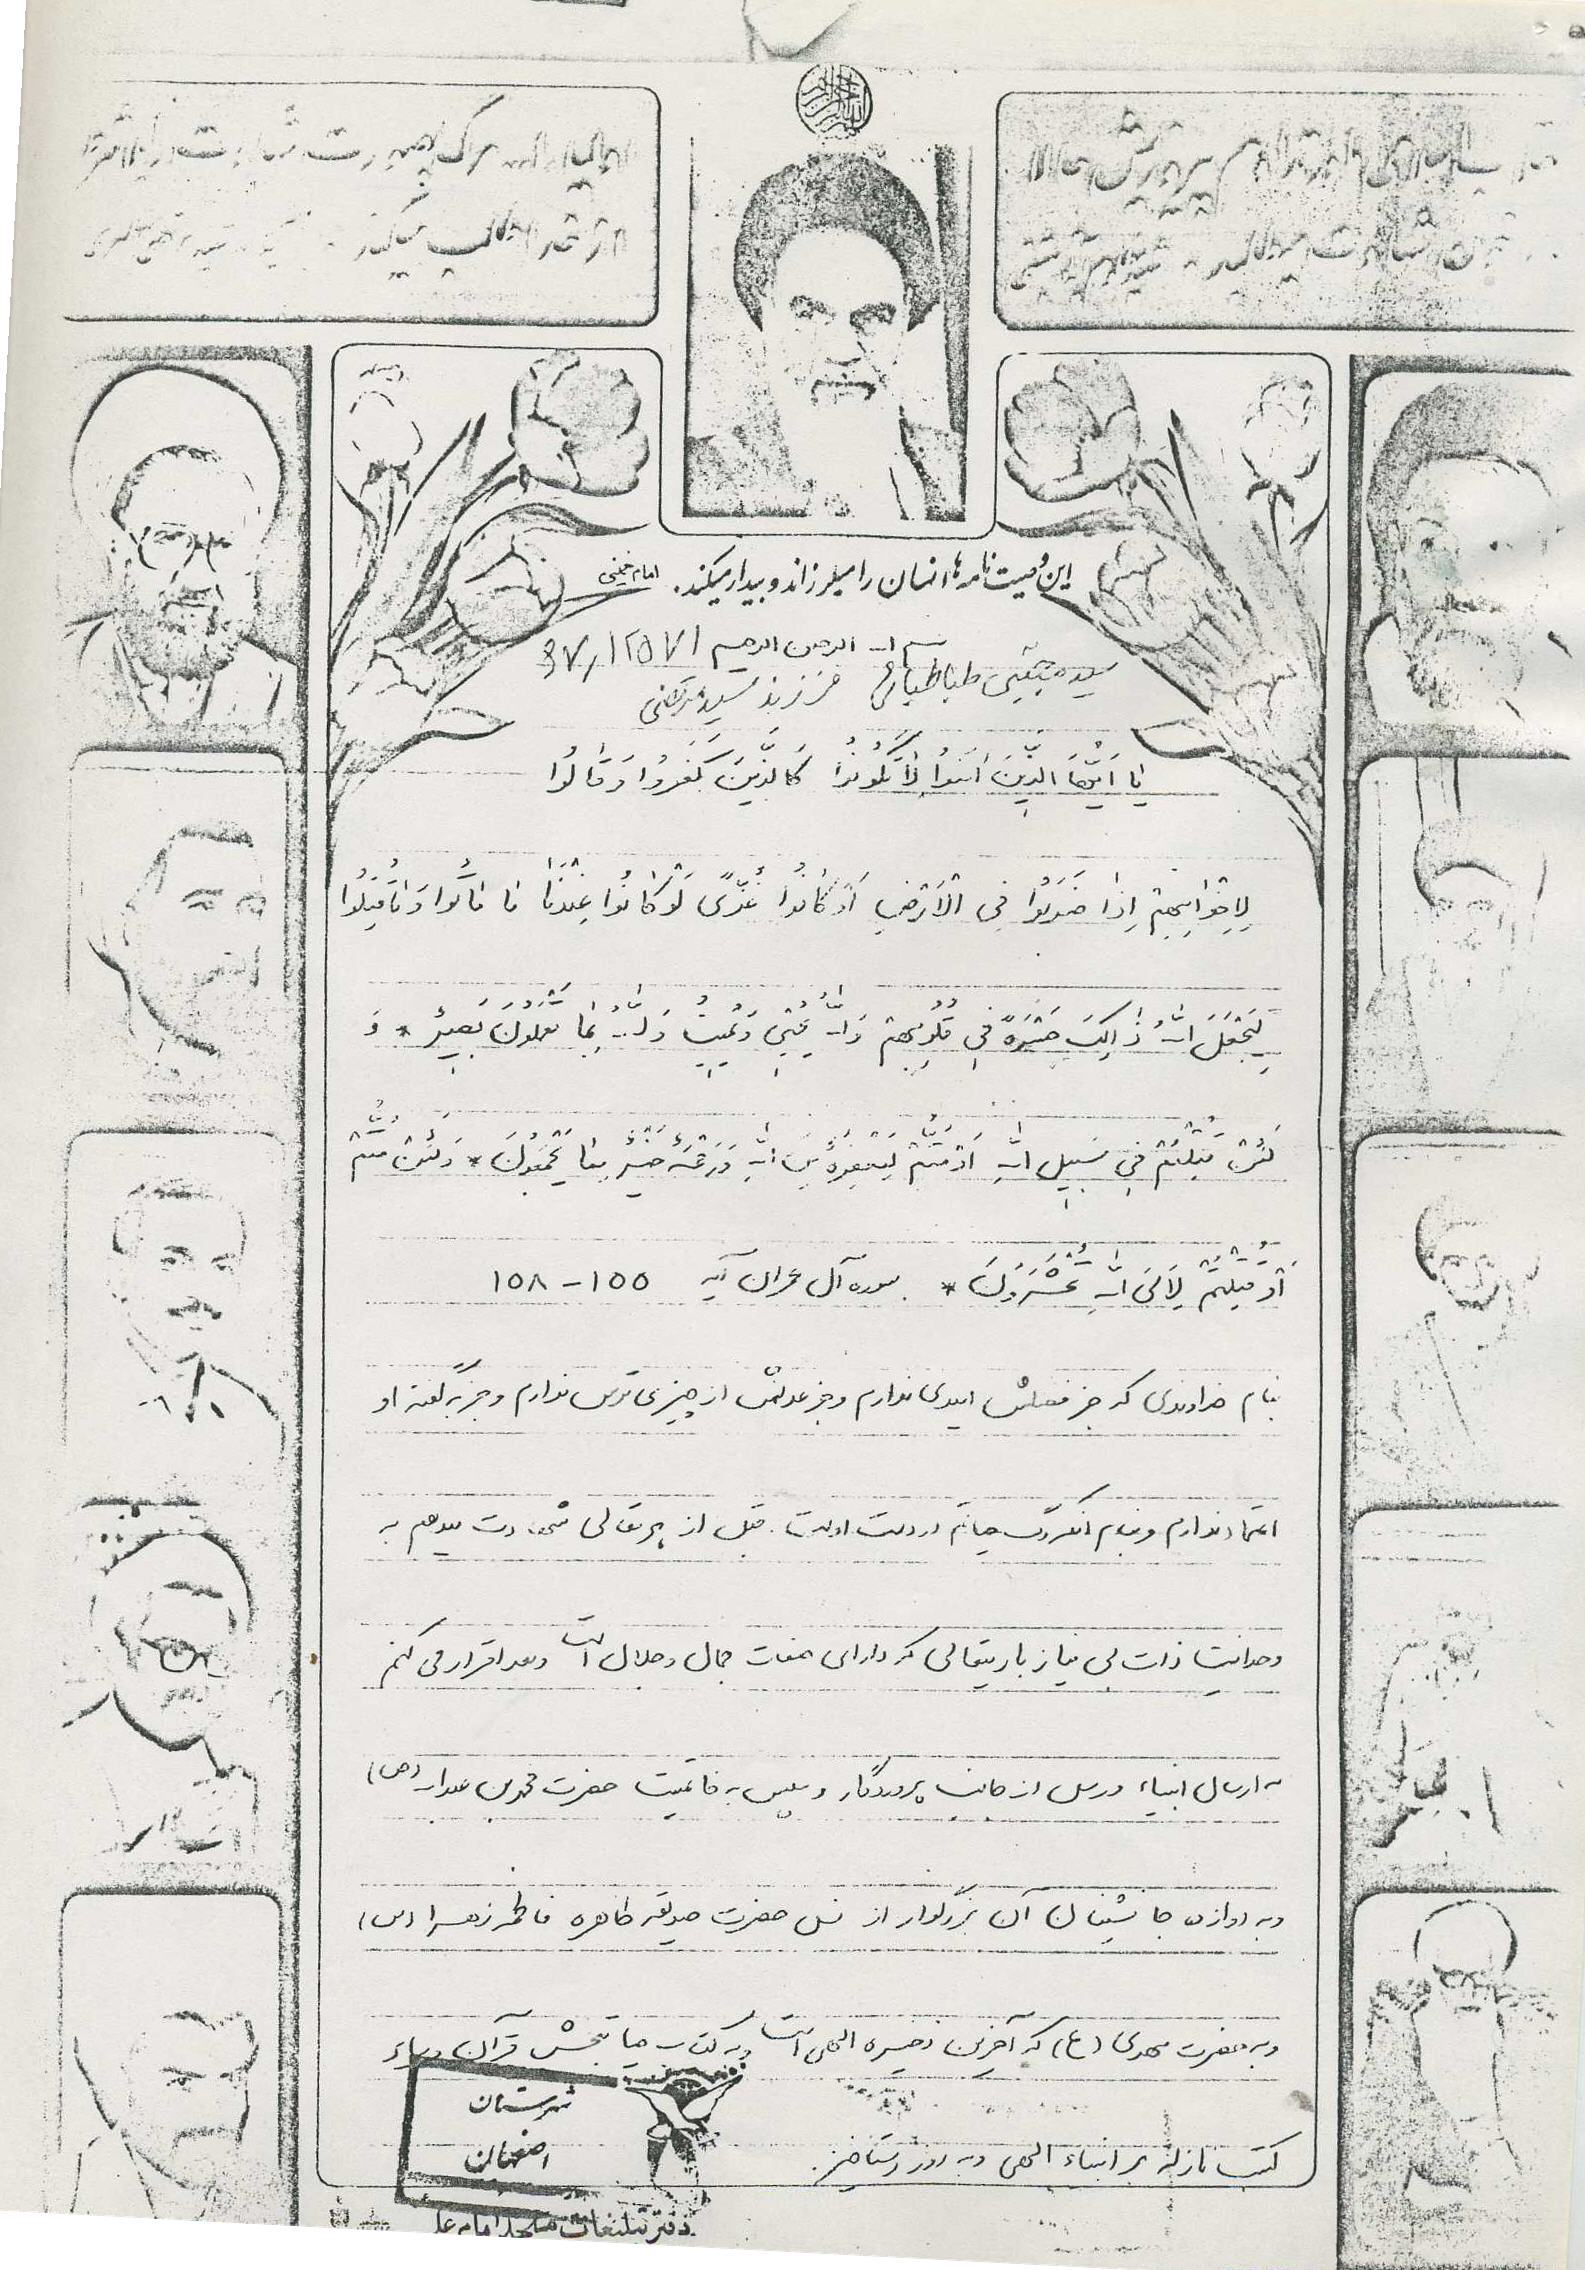 این وصیت نامه‌ها انسان را میلرزاند و بیدار میکند. امام خمینی
بسم الله الرحمن الرحیم
سید مجتبی طباطبائی فرزند سید مرتضی
یا اَیُّهَا الَّذینَ امَنُوا لاٰ تَکُونُوا کَالَّذینَ کَفَرُوا وَ قالُوا
لِاِخْوانِهِمْ اِذا ضَرَبُوا فِی الْاَرْضِ اَوْ کانُوا غُزًّی لَوْ کانُوا عِنْدَنا ما ماتُوا وَ ماقُتِلُوا
لِیَجْعَلَ اللهُ ذالِکَ حَسْرَةً فی قُلُوبِهِمْ وَ اللهُ یُحْیی وَ یُمیتُ وَ اللهُ بِما تَعْمَلُونَ بَصیرٌ * وَ
لَئِنْ قُتِلْتُمْ فی سَبیلِ اللهِ اَوْ مُتُّمْ لَمَغْفِرَةٌ مِنَ اللهِ وَ رَحْمَةٌ خَیْرٌ مِمّا یَجْمَعُونَ * وَ لَئِنْ مُتُّمْ
اَوْ قُتِلْتُمْ لَاِلَی اللهِ تُحْشَرُونَ * سوره آل عمران آیه ۱۵۵ - ۱۵۸
بنام خداوندی که جز فضلش امیدی ندارم و جز عدلش از چیزی ترس ندارم و جز به گفته او
اعتماد ندارم و بنام آنکه رگ حیاتم در دست اوست. قبل از هر مقالی شهادت میدهم به
وحدانیت ذات بی نیاز باریتعالی که دارای صفات جمال و جلال است و بعد اقرار می کنم
به ارسال انبیاء و رسل از جانب پروردگار و سپس به خاتمیت حضرت محمد بن عبدالله (ص)
و به دوازده جانشینان آن بزرگوار از نسل حضرت صدیقه طاهره فاطمه زهرا (س)
و به حضرت مهدی (ع) که آخرین ذخیره الهی است و به کتاب حیاتبخش قرآن و سایر
کتب نازله بر انبیاء الهی و به روز رستاخیز.
شهرستان
اصفهان
دفتر تبلیغات مسجد امام علی